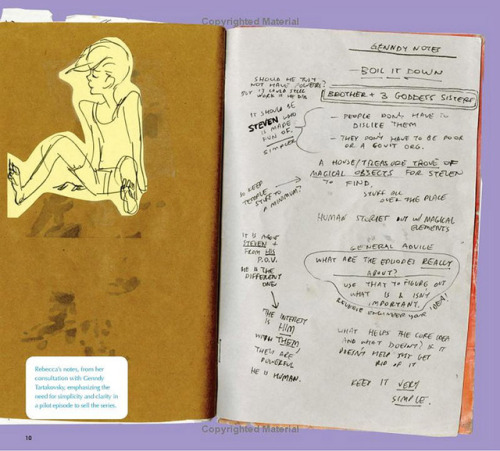 Copyrighted Material
GENNDY NOTES
BOIL IT DOWN
BROTHER + 3 GODDESS SISTERS
- PEOPLE DON'T HAVE TO
DISLIKE THEM
- THEY DON'T HAVE TO BE POOR
OR A GOVT ORG.
A HOUSE/TREASURE TROVE OF
MAGICAL OBJECTS FOR STEVEN
TO FIND.
STUFF ALL
OVER THE PLACE
HUMAN STORIES BUT W/ MAGICAL
ELEMENTS
GENERAL ADVICE
WHAT ARE THE EPISODES REALLY
ABOUT?
USE THAT TO FIGURE OUT
WHAT IS & ISN'T
IMPORTANT.
REVERSE ENGINEER YOUR IDEA!
WHAT HELPS THE CORE IDEA
AND WHAT DOESN'T? IF IT
DOESN'T HELP JUST GET
RID OF IT
KEEP IT VERY
SIMPLE.
SHOULD HE JUST
NOT HAVE POWERS?
IT SHOULD BE
STEVEN WHO
IS MADE
FUN OF.
SIMPLER
KEEP
TEMPLE
STUFF TO
A MINIMUM?
IT IS ABOUT
STEVEN &
FROM HIS
P.O.V.
HE IS THE
DIFFERENT
ONE
THE INTEREST
IS HIM
WITH THEM
THEY ARE
POWERFUL
HE IS HUMAN.
Rebecca's notes, from her
consultation with Genndy
Tartakovsky, emphasizing the
need for simplicity and clarity in
a pilot episode to sell the series.
10
Copyrighted Material